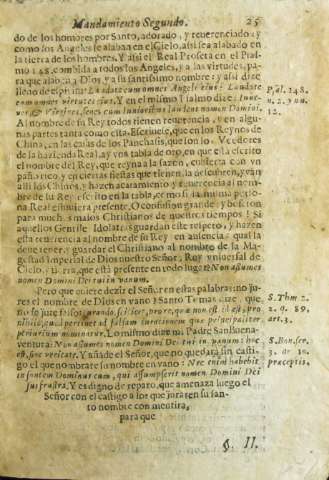 Mandamiento Segundo. 25
do de los hombres por Santo, adorado, y reuerenciado: y
como los Angeles le alaban en el Cielo, assi sea alabado en
la tierra de los hombres. Y assi el Real Profeta en el Psal-
mo 148. combida a todos los Angeles, y a las virtudes, pa-
ra que alaben a Dios, y a su santissimo nombre: y assi dize
lleno de espiritu: Laudate eum omnes Angeli eius: Laudate
eum omnes virtutes eius. Y en el mismo Psalmo dize: Iuue-
nes & Virgines, senes cum iunioribus laudent nomen Domini.
Al nombre de su Rey todos tienen reuerencia, y en algu-
nas partes tanta como esta. Escriuese, que en los Reynos de
China, en las casas de los
de la hazienda Real, ay vna tabla de oro, en que està escrito
el nombre del Rey, que reyna a la sazon, cubierta con vn
paño rico, y en ciertas fiestas que tienen, la descubren, y van
alli los Chinos, y hazen acatamiento y reuerencia al nom-
bre de su Rey escrito en la tabla, como si la misma perso-
na Real estuuiera presente. O confusion grande, y bofeton
para muchos malos Christianos de nuestros tiempos! Si
aquellos Gentiles Idolatras guardan este respeto, y hazen
esta reuerencia al nombre de su Rey en ausencia: qual la
deue tener, y guardar el Christiano al nombre de la Ma-
gestad Imperial de Dios nuestro Señor, Rey vniuersal de
Cielo, y tierra, que està presente en todo lugar? Non assumes
nomen Domini Dei tui in vanum.
Pero que quiere dezir el Señor en estas palabras: no ju-
res el nombre de Dios en vano? Santo Tomas dize que,
Lo mismo dize mi Padre San Buena-
ventura: Non assumes nomen Domini Dei tui in vanum: hoc
est, sine veritate. Y añade el Señor, que no quedarà sin casti-
go el que nombrare su nombre en vano: Nec enim habebit
insontem Dominus eum, qui assumpserit nomen Domini Dei
sui frustra. Y es digno de reparo, que amenaza luego el
Señor con el castigo a los que juraren su san-
to nombre con mentira,
para que
§. II.
Psal. 148.
n. 2. 3. &
12.
S. Thm. 2.
2. q. 89.
art. 3.
S. Bon. ser.
3. de 10.
præceptis.